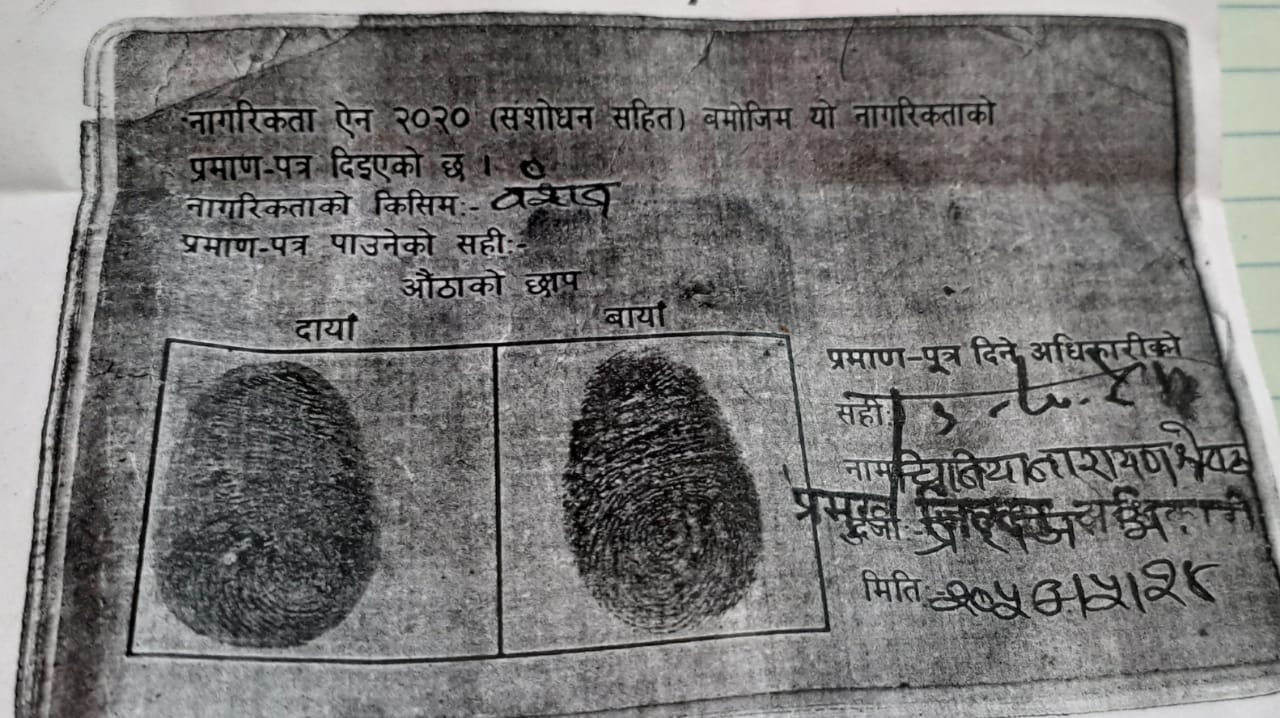 नागरिकता ऐन २०२० (संशोधन सहित) बमोजिम यो नागरिकताको
प्रमाण-पत्र दिइएको छ ।
नागरिकताको किसिम:- वंशज
प्रमाण-पत्र पाउनेको सही:-
औंठाको छाप
दायाँ
बायाँ
प्रमाण-पत्र दिने अधिकारीको
सही:
नाम नारायण श्रेष्ठ
प्रमुख जिल्ला अधिकारी
दर्जा
मिति: